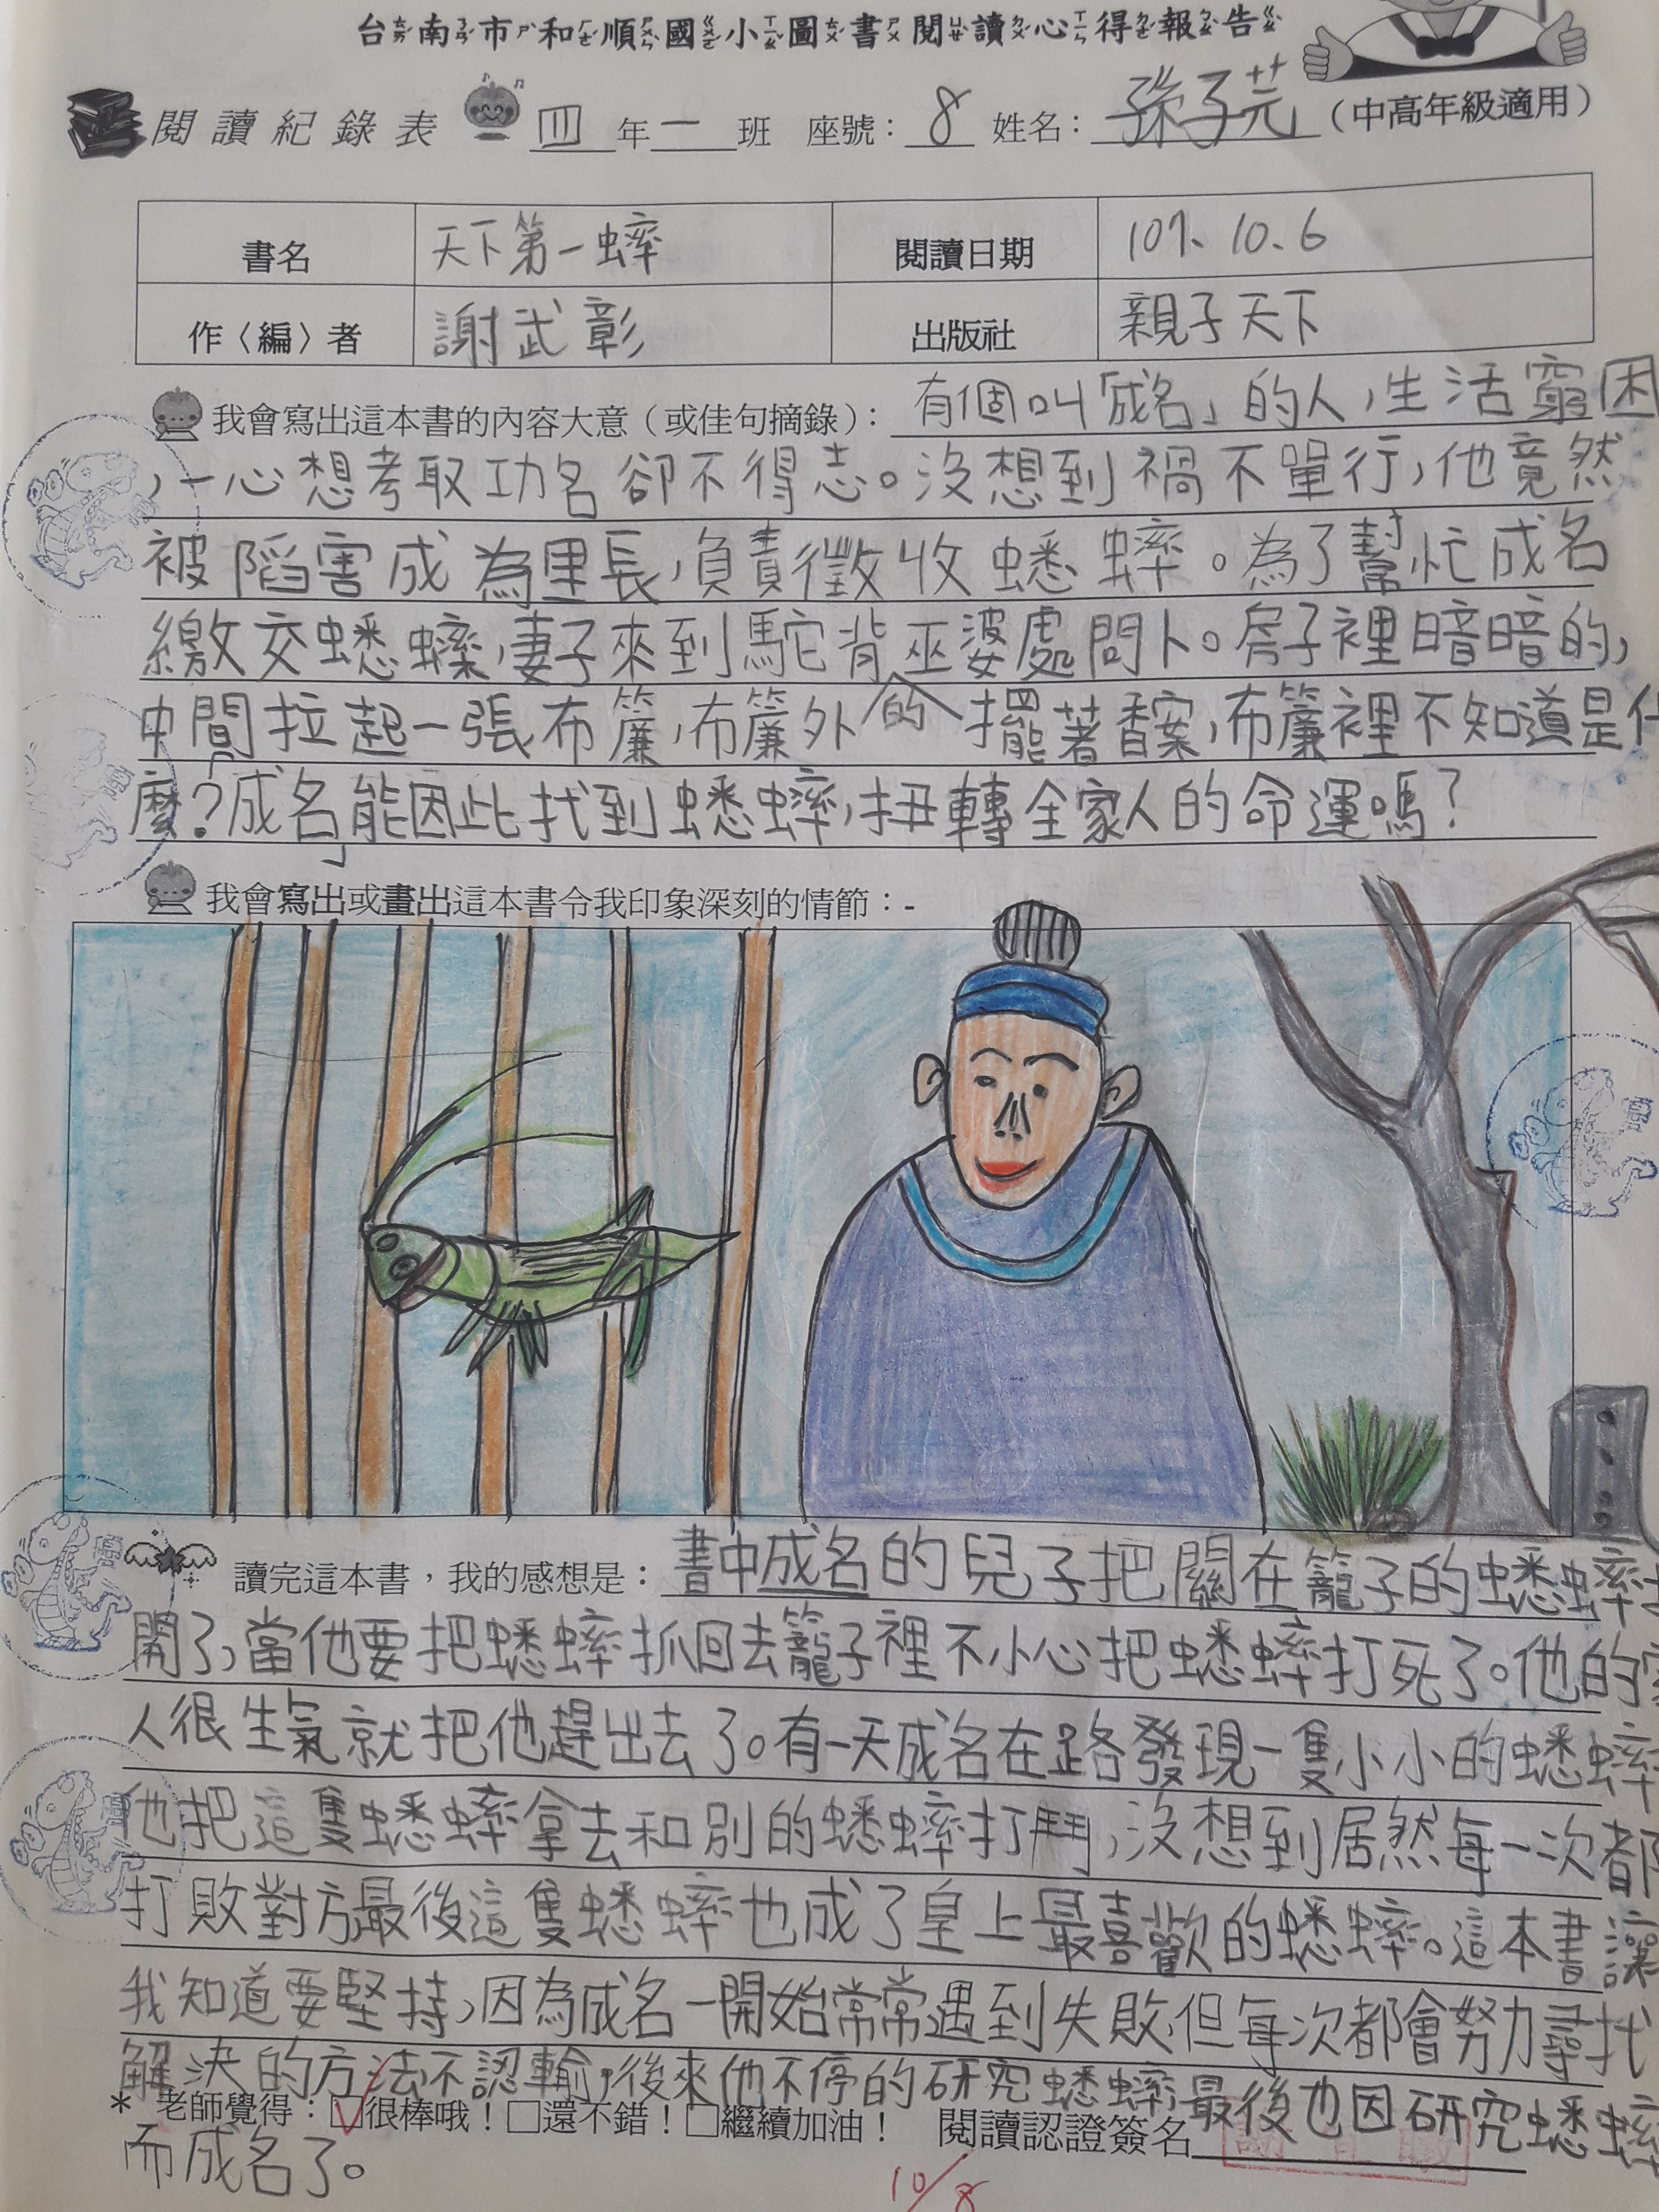 台南市和順國小圖書閱讀心得報告
閱讀紀錄表 四年一班 座號：8 姓名：孫子芸（中高年級適用）
書名 天下第一蟀 閱讀日期 107、10、6
作〈編〉者 謝武彰 出版社 親子天下
我會寫出這本書的內容大意（或佳句摘錄）：有個叫「成名」的人，生活窮困
，一心想考取功名卻不得志。沒想到禍不單行，他竟然
被陷害成為里長，負責徵收蟋蟀。為了幫忙成名
繳交蟋蟀，妻子來到駝背巫婆處問卜。房子裡暗暗的，
中間拉起一張布簾，布簾外的擺著香案，布簾裡不知道是什
麼？成名能因此找到蟋蟀，扭轉全家人的命運嗎？
我會寫出或畫出這本書令我印象深刻的情節：-
讀完這本書，我的感想是：書中成名的兒子把關在籠子的蟋蟀
開了，當他要把蟋蟀抓回去籠子裡不小心把蟋蟀打死了。他的家
人很生氣就把他趕出去了。有一天成名在路發現一隻小小的蟋蟀
他把這隻蟋蟀拿去和別的蟋蟀打鬥，沒想到居然每一次都
打敗對方最後這隻蟋蟀也成了皇上最喜歡的蟋蟀。這本書讓
我知道要堅持，因為成名一開始常常遇到失敗，但每次都會努力尋找
解決的方法不認輸，後來他不停的研究蟋蟀，最後也因研究蟋蟀
* 老師覺得：☑很棒哦！□還不錯！□繼續加油！ 閱讀認證簽名
而成名了。
10/8